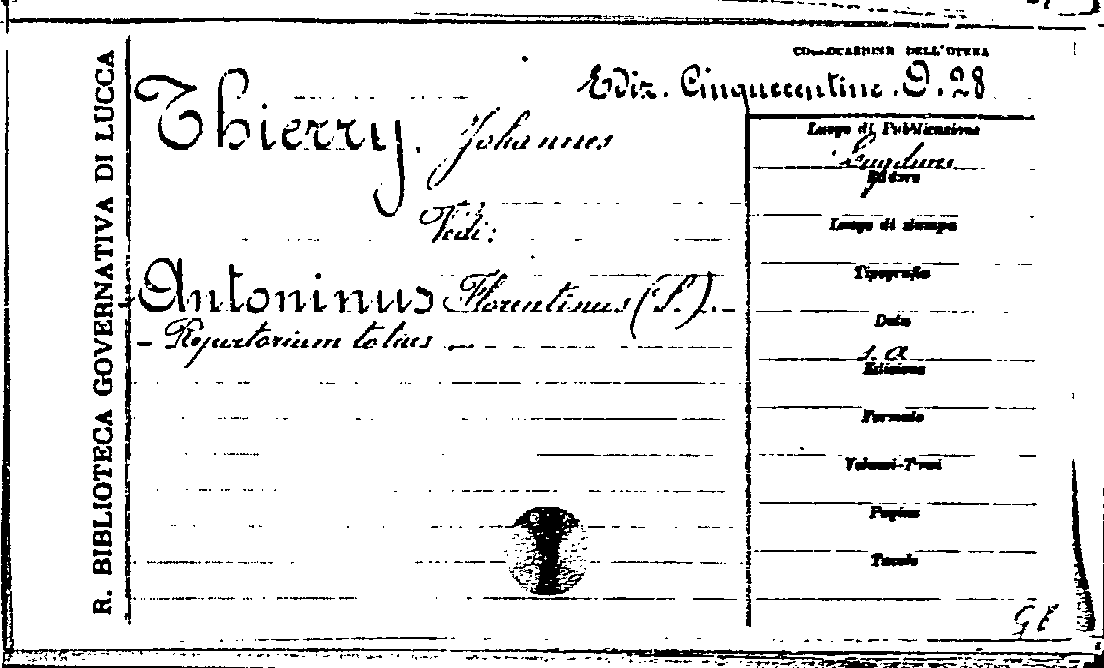 R. BIBLIOTECA GOVERNATIVA DI LUCCA
DELL'OPERA
Ediz. Cinquecentine. D. 28
Thierry. Johannes
Vedi:
Antoninus Florentinus (S.). -
- Repertorium totius
Luogo di Pubblicazione
Lugduni
Editore
Luogo di stampa
Tipografia
Data
s. a
Edizione
Formato
Volumi-Tomi
Pagine
Tavole